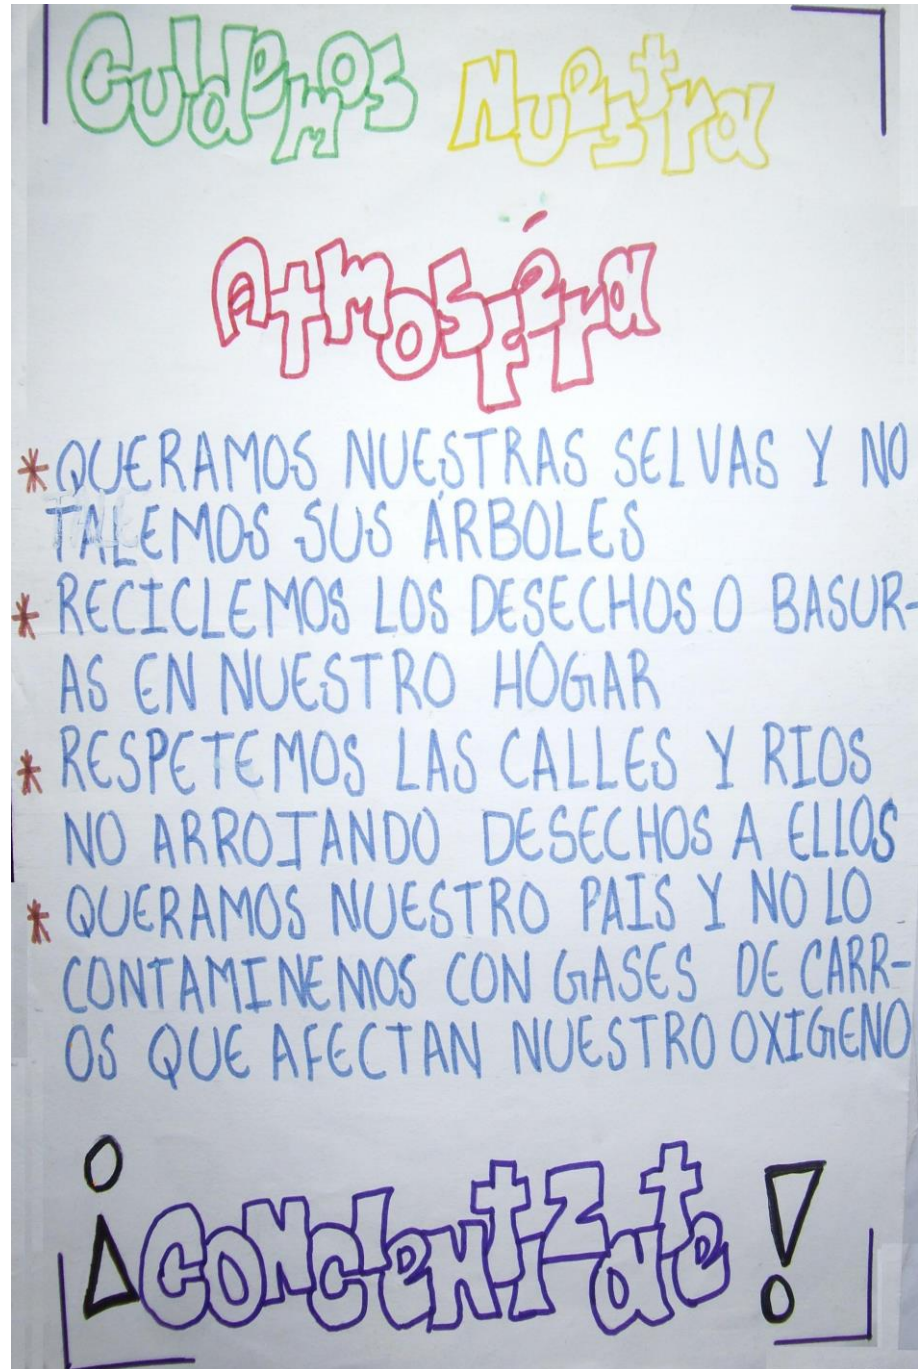 Cuidemos Nuestra
Atmosféra
* QUERAMOS NUESTRAS SELVAS Y NO
TALEMOS SUS ÁRBOLES
* RECICLEMOS LOS DESECHOS O BASUR-
AS EN NUESTRO HOGAR
* RESPETEMOS LAS CALLES Y RIOS
NO ARROJANDO DESECHOS A ELLOS
* QUERAMOS NUESTRO PAIS Y NO LO
CONTAMINEMOS CON GASES DE CARR-
OS QUE AFECTAN NUESTRO OXIGENO
¡CONCIENTIZATE!